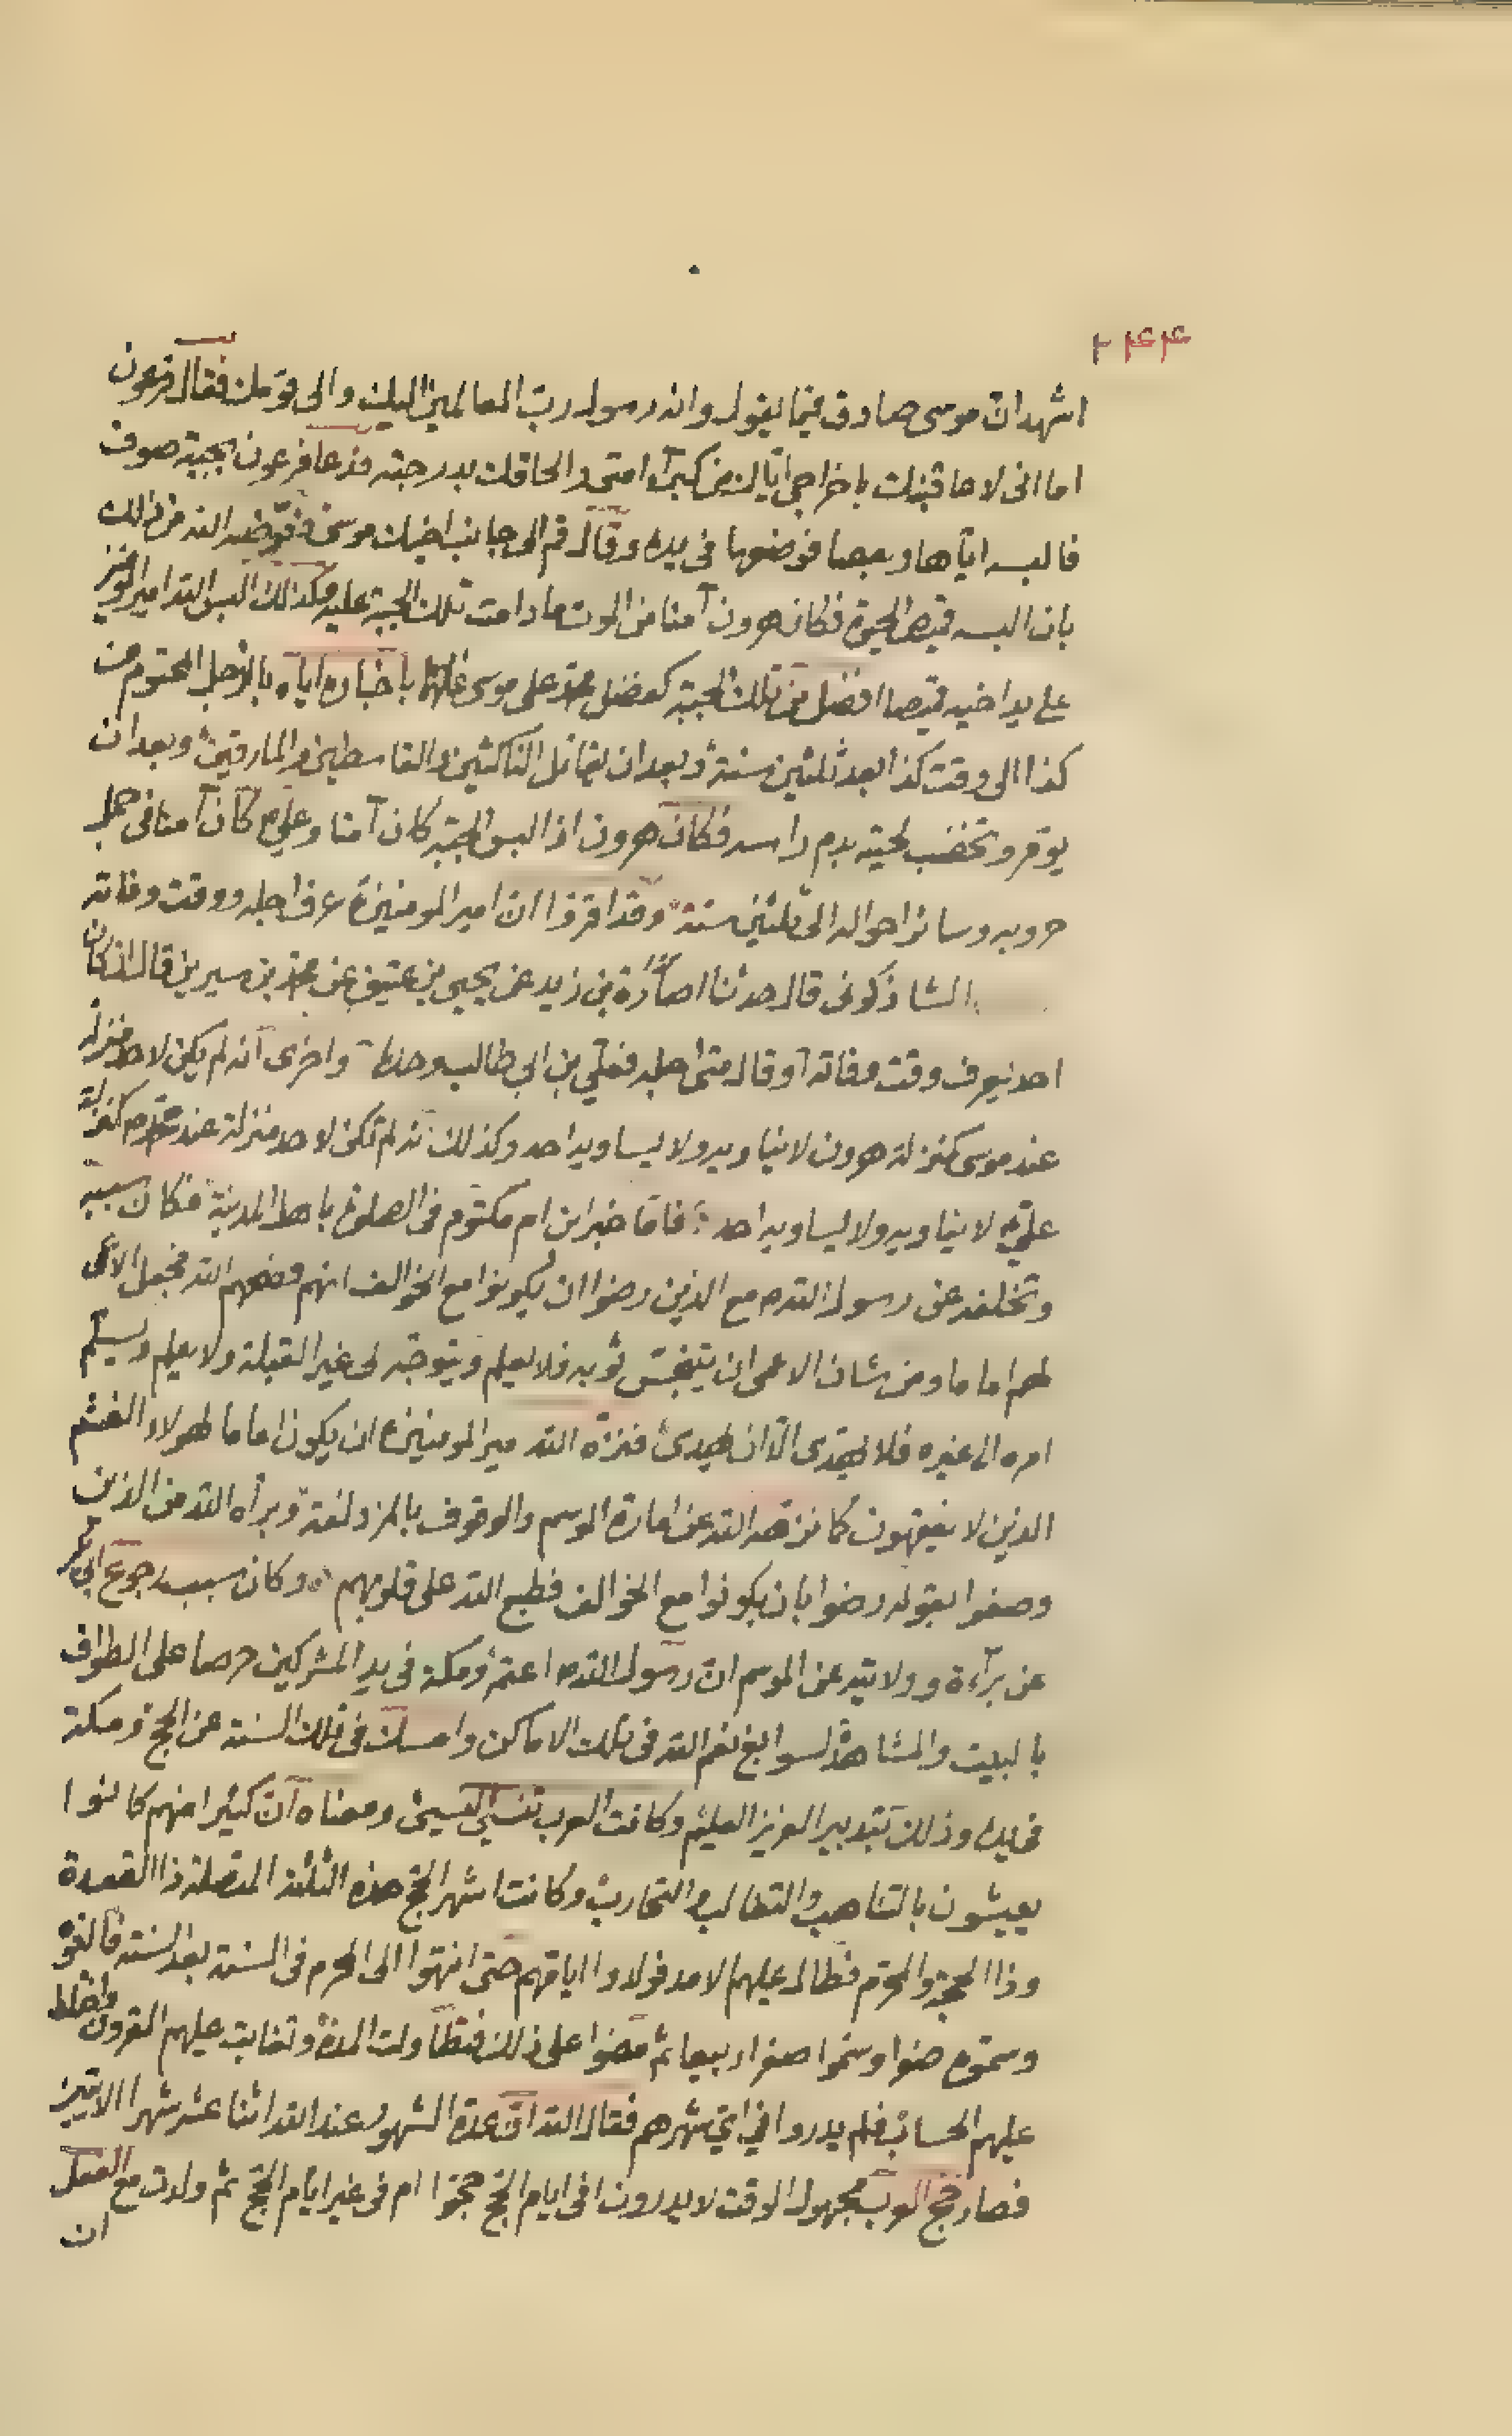 ۲۴۴
اشهد ان موسى صادق فيما يقول وانه رسول رب العالمين اليك والى قومك فقال فرعون
اما انى لاعاقبنك باخراجى اياك من كبرآء امتى والحاقك بدرجته فدعا فرعون بجبة صوف
فالبسه اياها وبعصا فوضعها فى يده وقال قم الى جانب اخيك موسى فعوضه الله من ذلك
بان البسه قميص الحيوة فكان هرون آمنا من الموت ما دامت تلك الجبة عليه وكذلك البس الله امير المومنين
على يد اخيه قميصا افضل من تلك الجبة كفضل محمد على موسى باخباره اياه بالاجل المحتوم من
كذا الى وقت كذا بعد ثلثين سنة وبعد ان يقاتل الناكثين والقاسطين والمارقين وبعد ان
يوقر وتخضب لحيته بدم راسه فكان هرون اذا لبس الجبة كان آمنا وعلى م كان آمنا فى جمل
حروبه وسائر احواله الى ثلثين سنة وقد اقروا ان امير المومنين ع عرف اجله ووقت وفاته
الشاذكونى قال حدثنا حماد بن زيد عن يحيى بن عتيق عن محمد بن سيرين قال ان كان
احد يعرف وقت وفاته او قال متى اجله فعلى بن ابى طالب وحده واخرى انه لم يكن لاحد منزلة
عند موسى كمنزلة هرون لا يناويه ولا يساويه احد وكذلك انه لم تكن لاحد منزلة عند محمد م كمنزلة
على م لا يناويه ولا يساويه احد فاما خبر ابن ام مكتوم فى الصلوة باهل المدينة فكان سببه
وتخلفه عن رسول الله ص مع الذين رضوا ان يكونوا مع الخوالف انهم وضعهم الله فجعل الاعمى
لهم اماما ومن شان الاعمى ان يتنجس ثوبه فلا يعلم ويتوجه الى غير القبلة ولا يعلم ويسلم
امره الى غيره فلا يهتدى الا ان يهدى فنزه الله امير المومنين ع ان يكون اماما لهولاء الغثم
الذين لا يفقهون كما نزهه الله عن امارة الموسم والوقوف بالمزدلفة وبرأه الله من الذين
وصفوا بقوله رضوا بان يكونوا مع الخوالف فطبع الله على قلوبهم وكان سبب رجوع ابى بكر
عن برآءة وولايته عن الموسم ان رسول الله ص اعتمر ومكة فى يد المشركين حرصا على الطواف
بالبيت والمشاهدة لسوابغ نعم الله فى تلك الاماكن وامسك فى تلك السنة عن الحج ومكة
فى يده وذلك بتدبير العزيز العليم وكانت العرب تنسئ النسئ ومعناه ان كثيرا منهم كانوا
يعيشون بالتناهب والتطالب والتحارب وكانت اشهر الحج هذه الثلثة المتصلة ذا القعدة
وذا الحجة والمحرم فطال عليهم الامد فولاوا اياقهم حتى انتهوا الى المحرم فى السنة بعد السنة فالغوه
وسموه صفرا وسموا صفرا ربيعا ثم مضوا على ذلك فتطاولت المدة وتعاقبت عليهم القرون واختلط
عليهم الحساب فلم يدروا فى اى شهر هم فقال الله ان عدة الشهور عند الله اثنا عشر شهرا الايتين
فصار حج العرب مجهول الوقت لا يدرون افى ايام الحج حجوا ام فى غير ايام الحج ثم ولدت مع الفعل
ان